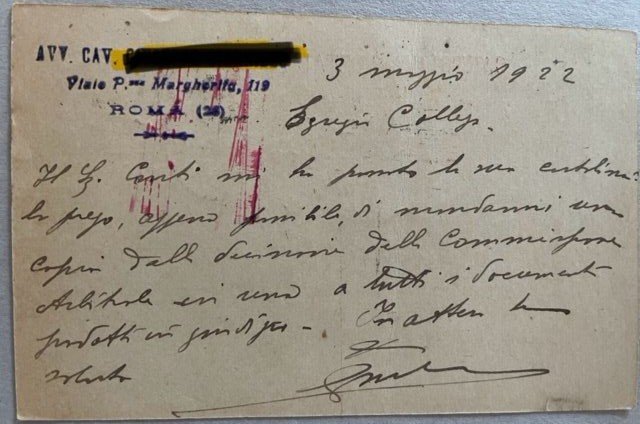 AVV. CAV.
Viale P.ssa Margherita, 119
ROMA (25)
3 maggio 1922
Egregio Collega.
Il Sig. Conti mi ha la sua cartolina:
la prego, appena possibile, di mandarmi una
copia della decisione della Commissione
Arbitrale in una a tutti i documenti
prodotti in giudizio - In attesa La
saluto